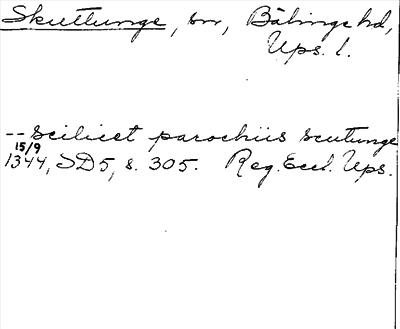 Skuttunge, sn, Bälinge hd,
Ups. l.
-- scilicet parochiis scutunge
15/9
1344, SD5, s. 305. Reg. Eccl. Ups.